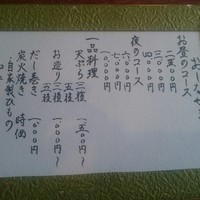 おしながき
お昼のコース
二五〇〇円
三〇〇〇円
四〇〇〇円
夜のコース
六〇〇〇円
八〇〇〇円
一〇〇〇〇円
一品料理
天ぷら 三種 一五〇〇円〜
五種
お造り 三種 一〇〇〇円〜
五種
だし巻き 一〇〇〇円
炭火焼き 時価
自家製ひもの